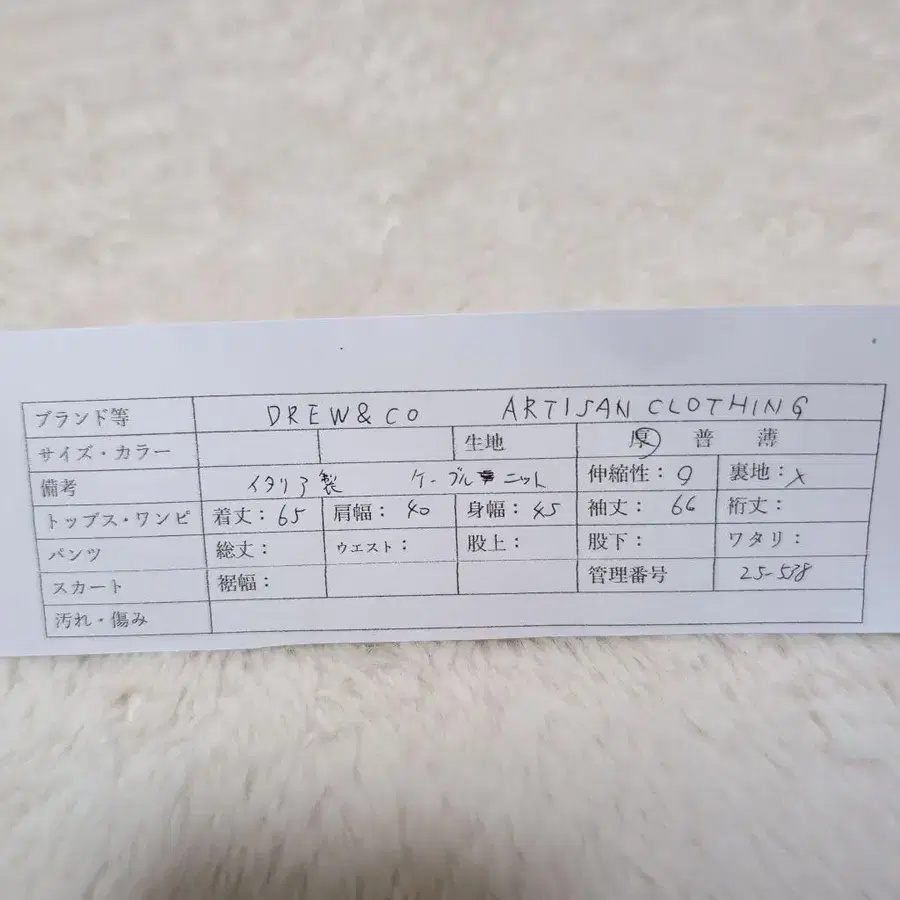 ブランド等 DREW&CO ARTISAN CLOTHING
サイズ・カラー 生地 厚 普 薄
備考 イタリア製 ケーブルニット 伸縮性:○ 裏地:×
トップス・ワンピ 着丈:65 肩幅:40 身幅:45 袖丈:66 裄丈:
パンツ 総丈: ウエスト: 股上: 股下: ワタリ:
スカート 裾幅: 管理番号 25-538
汚れ・傷み